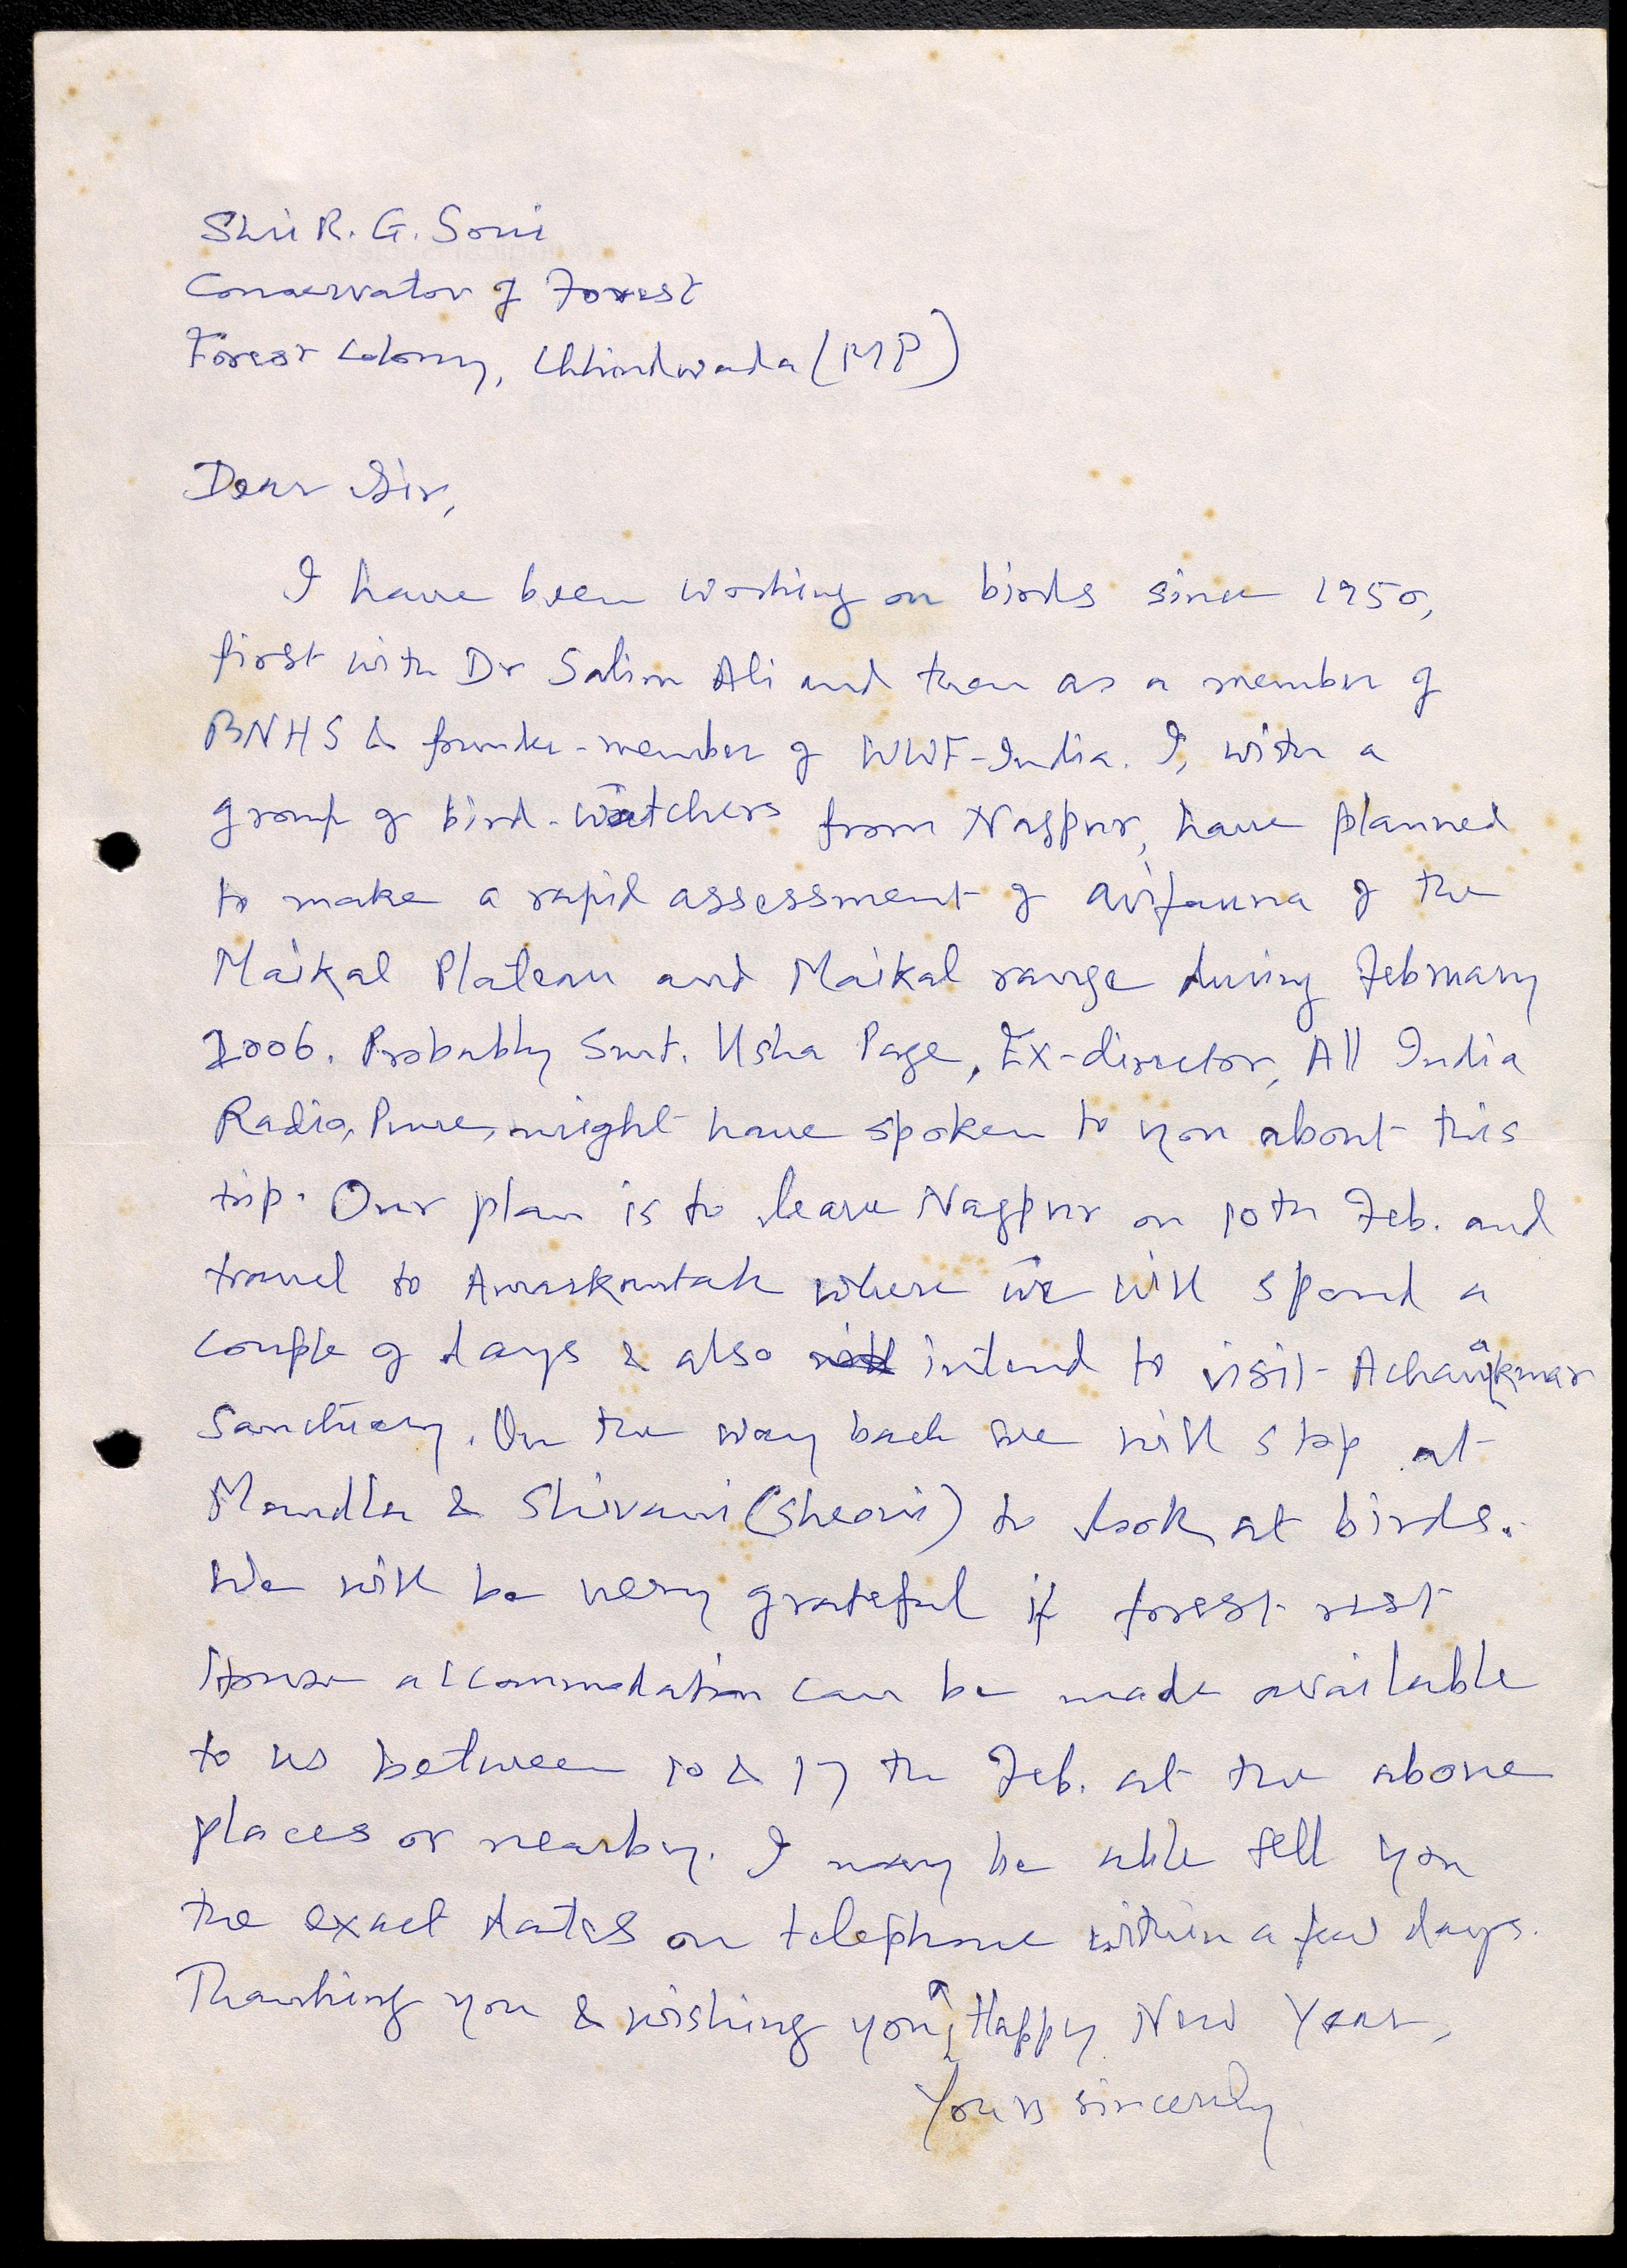 Shri R. G. Soni
Conservator of Forest
Forest Colony, Chhindwada (MP)
Dear Sir,
I have been working on birds since 1950,
first with Dr Salim Ali and then as a member of
BNHS & founder-member of WWF-India. I, with a
group of bird-watchers from Nagpur, have planned
to make a rapid assessment of avifauna of the
Maikal Plateau and Maikal range during February
2006. Probably Smt. Usha Page, Ex-director, All India
Radio, Pune, might have spoken to you about this
trip. Our plan is to leave Nagpur on 10th Feb. and
travel to Amarkantak where we will spend a
couple of days & also intend to visit Achanakmar
Sanctuary. On the way back we will stop at
Mandla & Shivani (Sheoni) to look at birds.
We will be very grateful if forest rest
House accommodation can be made available
to us between 10 & 17 th Feb. at the above
places or nearby. I may be able tell you
the exact dates on telephone within a few days.
Thanking you & wishing you a Happy New Year,
Yours sincerely